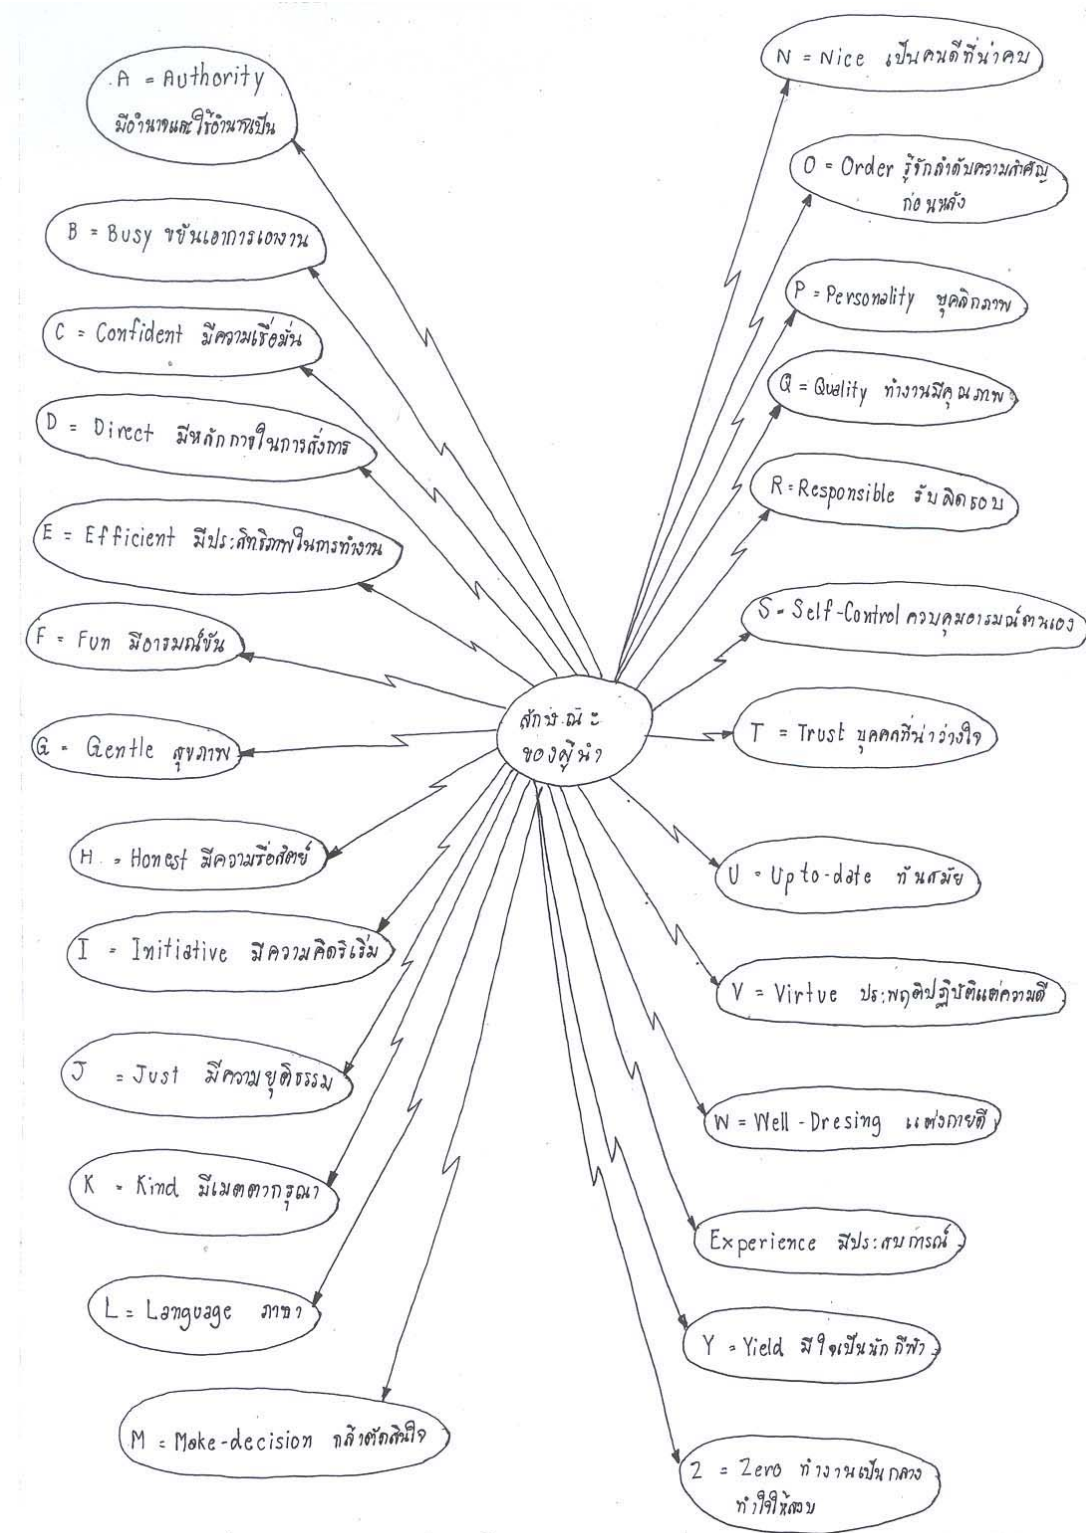 ลักษณะ
ของผู้นำ
A = Authority
มีอำนาจและใช้อำนาจเป็น
B = Busy ขยันเอาการเอางาน
C = Confident มีความเชื่อมั่น
D = Direct มีหลักการในการสั่งการ
E = Efficient มีประสิทธิภาพในการทำงาน
F = Fun มีอารมณ์ขัน
G = Gentle สุขภาพ
H = Honest มีความซื่อสัตย์
I = Initiative มีความคิดริเริ่ม
J = Just มีความยุติธรรม
K = Kind มีเมตตากรุณา
L = Language ภาษา
M = Make-decision กล้าตัดสินใจ
N = Nice เป็นคนดีที่น่าคบ
O = Order รู้จักลำดับความสำคัญ
ก่อนหลัง
P = Personality บุคลิกภาพ
Q = Quality ทำงานมีคุณภาพ
R = Responsible รับผิดชอบ
S = Self-Control ควบคุมอารมณ์ตนเอง
T = Trust บุคคลที่น่าวางใจ
U = Up to-date ทันสมัย
V = Virtue ประพฤติปฏิบัติแต่ความดี
W = Well-Dresing แต่งกายดี
Experience มีประสบการณ์
Y = Yield มีใจเป็นนักกีฬา
Z = Zero ทำงานเป็นกลาง
ทำใจให้สงบ